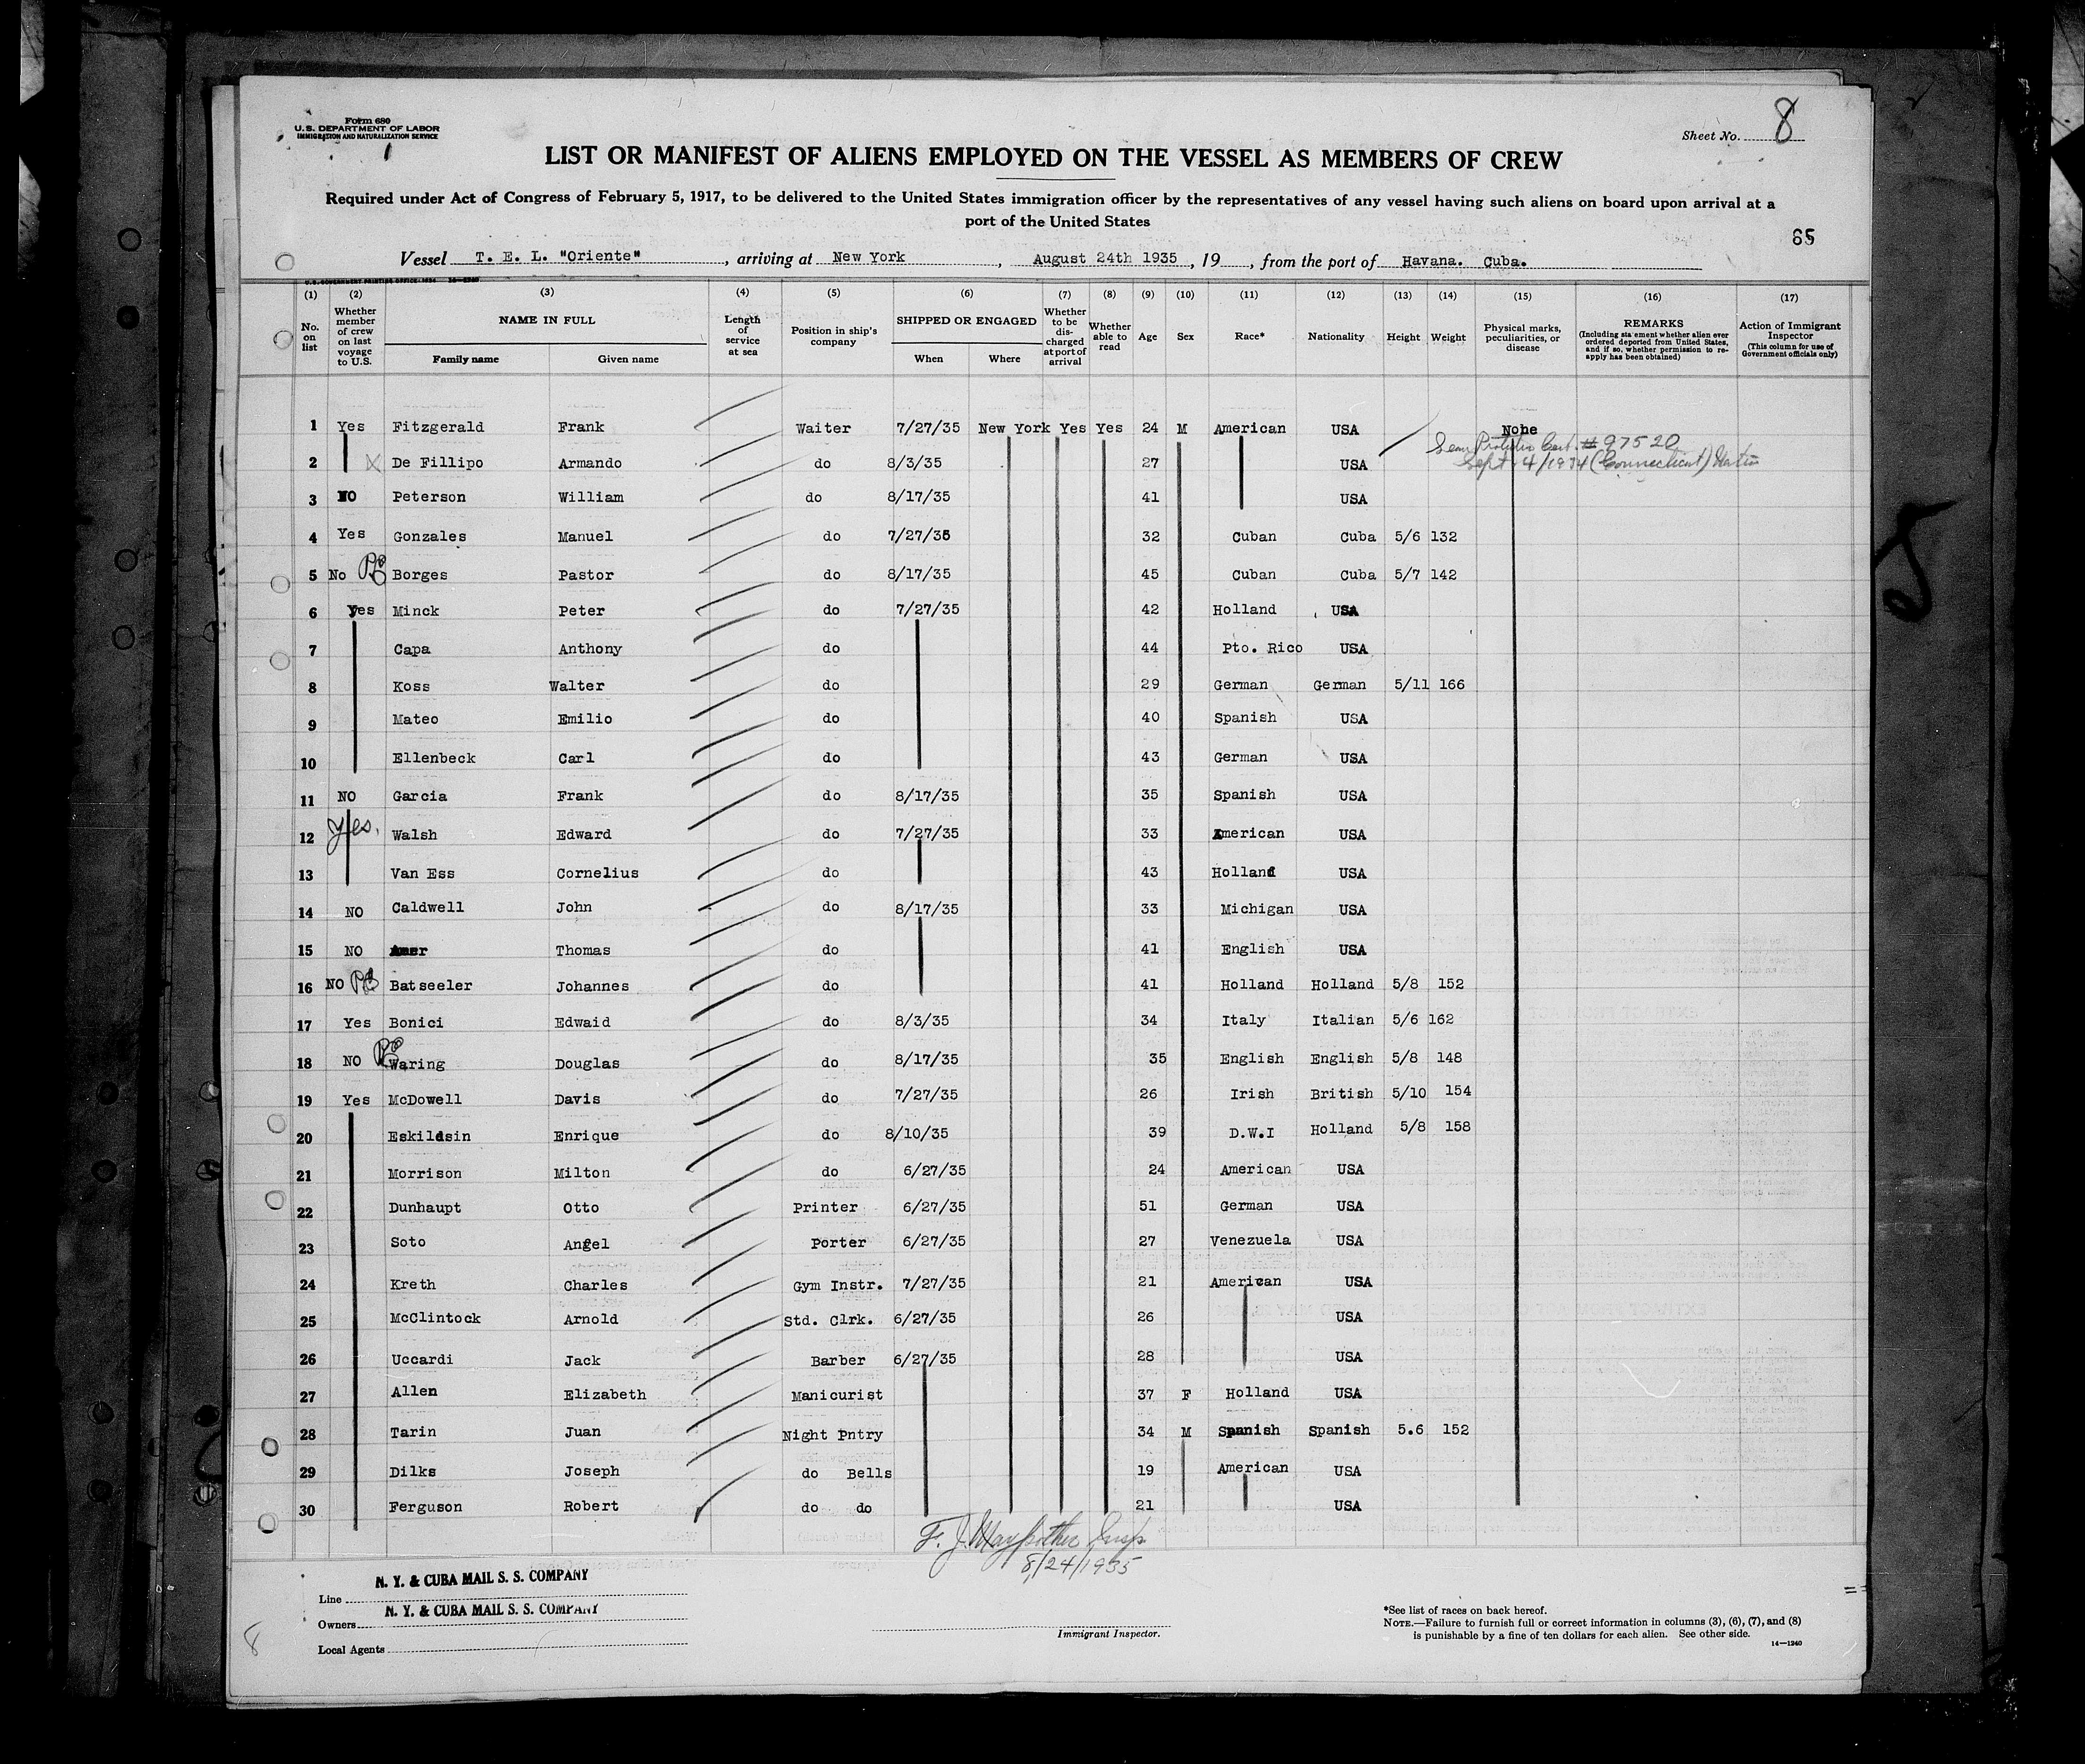 Form 680
U.S. DEPARTMENT OF LABOR
IMMIGRATION AND NATURALIZATION SERVICE
Sheet No. 8
LIST OR MANIFEST OF ALIENS EMPLOYED ON THE VESSEL AS MEMBERS OF CREW
Required under Act of Congress of February 5, 1917, to be delivered to the United States immigration officer by the representatives of any vessel having such aliens on board upon arrival at a
port of the United States
65
Vessel T. E. L. "Oriente", arriving at New York, August 24th 1935, 19, from the port of Havana. Cuba.
U.S. GOVERNMENT PRINTING OFFICE: 1934
(1) (2) (3) (4) (5) (6) (7) (8) (9) (10) (11) (12) (13) (14) (15) (16) (17)
No. on list
Whether member of crew on last voyage to U.S.
NAME IN FULL
Family name
Given name
Length of service at sea
Position in ship's company
SHIPPED OR ENGAGED
When
Where
Whether to be discharged at port of arrival
Whether able to read
Age
Sex
Race*
Nationality
Height
Weight
Physical marks, peculiarities, or disease
REMARKS
(Including statement whether alien ever ordered deported from United States, and if so, whether permission to reapply has been obtained)
Action of Immigrant Inspector
(This column for use of Government officials only)
1 Yes Fitzgerald Frank Waiter 7/27/35 New York Yes Yes 24 M American USA None
2 De Fillipo Armando do 8/3/35 27 USA Cert. #97520
Sept 4/1934 (Connecticut)
3 NO Peterson William do 8/17/35 41 USA
4 Yes Gonzales Manuel do 7/27/35 32 Cuban Cuba 5/6 132
5 No Borges Pastor do 8/17/35 45 Cuban Cuba 5/7 142
6 Yes Minck Peter do 7/27/35 42 Holland USA
7 Capa Anthony do 44 Pto. Rico USA
8 Koss Walter do 29 German German 5/11 166
9 Mateo Emilio do 40 Spanish USA
10 Ellenbeck Carl do 43 German USA
11 NO Garcia Frank do 8/17/35 35 Spanish USA
12 Yes. Walsh Edward do 7/27/35 33 American USA
13 Van Ess Cornelius do 43 Holland USA
14 NO Caldwell John do 8/17/35 33 Michigan USA
15 NO Thomas do 41 English USA
16 NO Batseeler Johannes do 41 Holland Holland 5/8 152
17 Yes Bonici Edwaid do 8/3/35 34 Italy Italian 5/6 162
18 NO Waring Douglas do 8/17/35 35 English English 5/8 148
19 Yes McDowell Davis do 7/27/35 26 Irish British 5/10 154
20 Eskildsin Enrique do 8/10/35 39 D.W.I Holland 5/8 158
21 Morrison Milton do 6/27/35 24 American USA
22 Dunhaupt Otto Printer 6/27/35 51 German USA
23 Soto Angel Porter 6/27/35 27 Venezuela USA
24 Kreth Charles Gym Instr. 7/27/35 21 American USA
25 McClintock Arnold Std. Clrk. 6/27/35 26 USA
26 Uccardi Jack Barber 6/27/35 28 USA
27 Allen Elizabeth Manicurist 37 F Holland USA
28 Tarin Juan Night Pntry 34 M Spanish Spanish 5.6 152
29 Dilks Joseph do Bells 19 American USA
30 Ferguson Robert do do 21 USA
8/24/1935
Line N. Y. & CUBA MAIL S. S. COMPANY
Owners N. Y. & CUBA MAIL S. S. COMPANY
Local Agents
Immigrant Inspector.
*See list of races on back hereof.
NOTE.—Failure to furnish full or correct information in columns (3), (6), (7), and (8)
is punishable by a fine of ten dollars for each alien. See other side.
14—1240
8